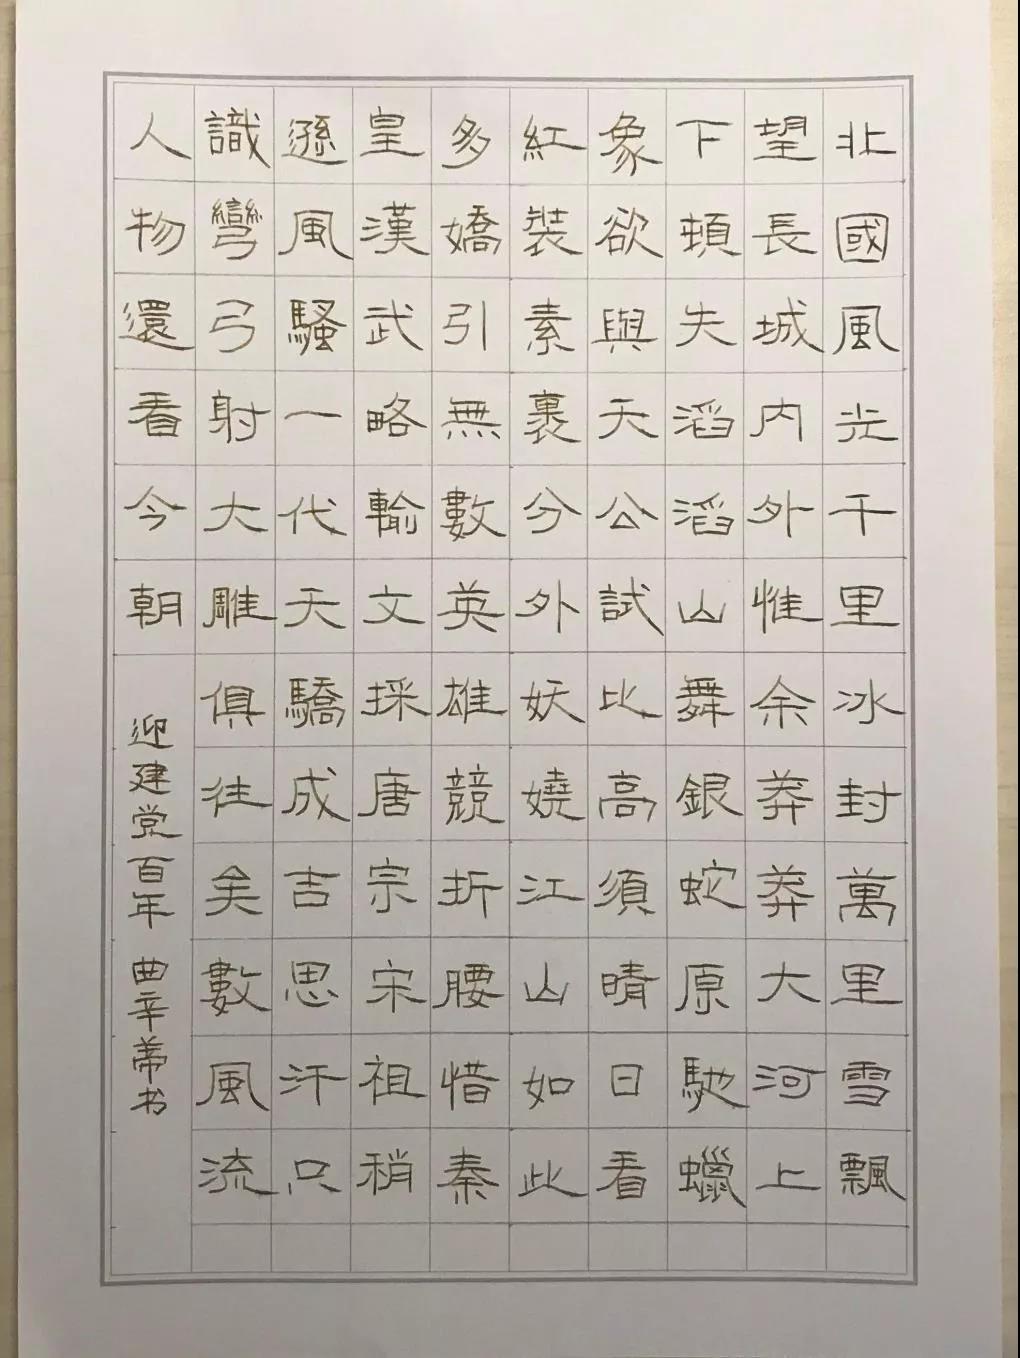 北國風光千里冰封萬里雪飄
望長城内外惟余莽莽大河上
下頓失滔滔山舞銀蛇原馳蠟
象欲與天公試比高須晴日看
紅裝素裹分外妖嬈江山如此
多嬌引無數英雄競折腰惜秦
皇漢武略輸文採唐宗宋祖稍
遜風騷一代天驕成吉思汗只
識彎弓射大雕俱往矣數風流
人物還看今朝
迎建党百年 曲辛蒂书